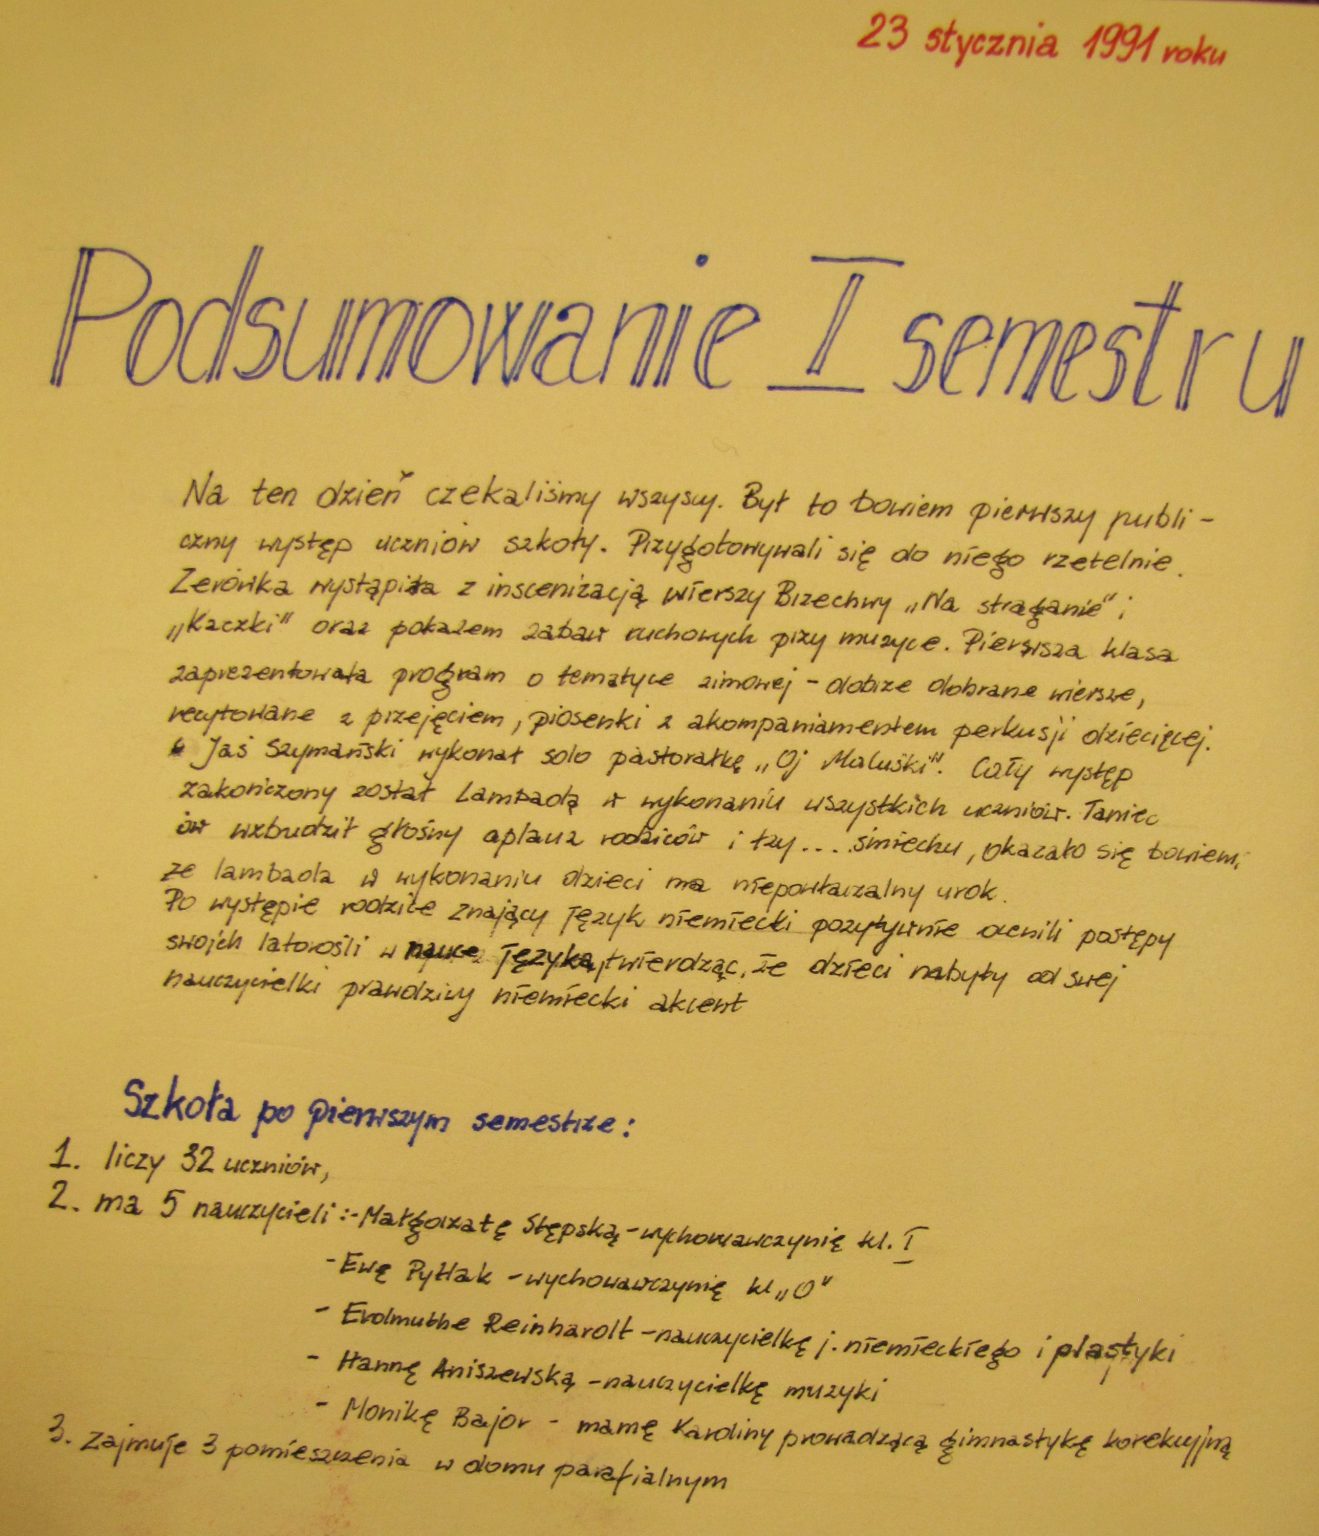 23 stycznia 1991 roku
Podsumowanie I semestru
Na ten dzień czekaliśmy wszyscy. Był to bowiem pierwszy publi-
czny występ uczniów szkoły. Przygotowywali się do niego rzetelnie.
Zerówka wystąpiła z inscenizacją wierszy Brzechwy „Na straganie" i
„Kaczki" oraz pokazem zabaw ruchowych przy muzyce. Pierwsza klasa
zaprezentowała program o tematyce zimowej - dobrze dobrane wiersze,
recytowane z przejęciem, piosenki z akompaniamentem perkusji dziecięcej.
Jaś Szymański wykonał solo pastorałkę „Oj Maluśki". Cały występ
zakończony został Lambadą w wykonaniu wszystkich uczniów. Taniec
ów wzbudził głośny aplauz rodziców i łzy.... śmiechu, okazało się bowiem,
że lambada w wykonaniu dzieci ma niepowtarzalny urok.
Po występie rodzice znający język niemiecki pozytywnie ocenili postępy
swoich latorośli w nauce języka, twierdząc, że dzieci nabyły od swej
nauczycielki prawdziwy niemiecki akcent
Szkoła po pierwszym semestrze:
1. liczy 32 uczniów,
2. ma 5 nauczycieli:-Małgorzatę Stępską-wychowawczynię kl. I
-Ewę Pytlak -wychowawczynię kl „0"
- Erdmuthe Reinhardt -nauczycielkę j. niemieckiego i plastyki
- Hannę Aniszewską -nauczycielkę muzyki
- Monikę Bajor - mamę Karoliny prowadzącą gimnastykę korekcyjną
3. Zajmuje 3 pomieszczenia w domu parafialnym